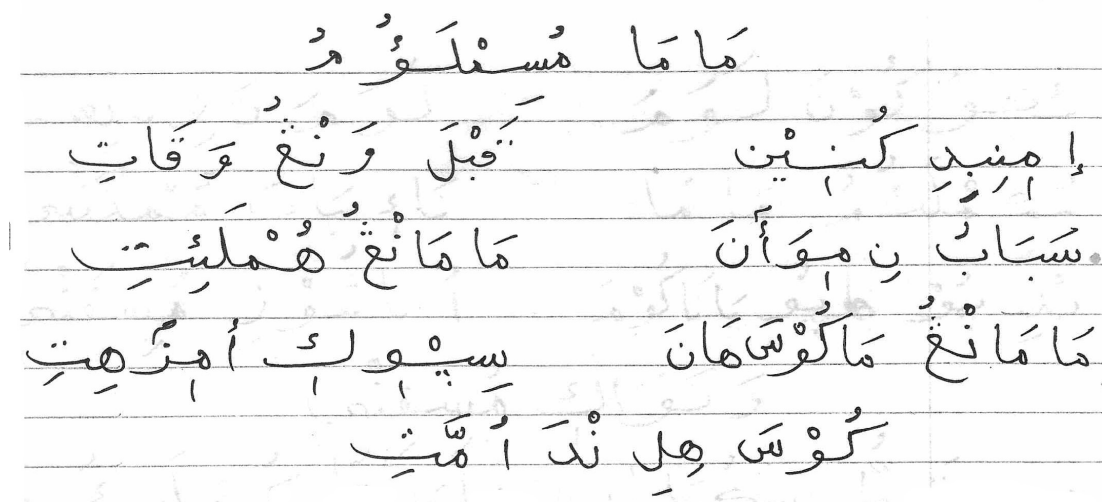 مَا مَا مُسِمْلَؤُ مُ
إِمٖنِبِدِ كُنِيٖنِ قَبْلَ وَنْڠُ وَقَاتِ
سَبَابُ نِ مٖوَأَنَ مَا مَانْڠُ هُمْلَئِتِ
مَا مَانْڠُ مَاكُوْسَهَانَ سِيْوٖ كٖ أَمٖزُهِتِ
كُوْسَ هِلِ نْدَ اُمَّتِ